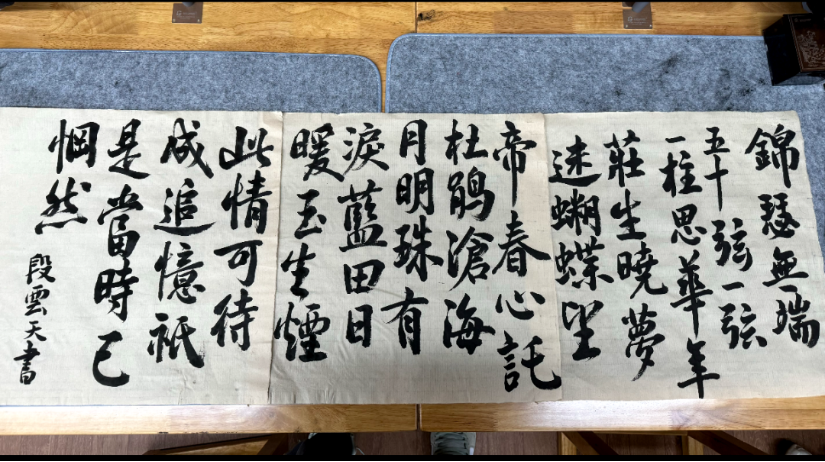 錦瑟無端
五十弦一弦
一柱思華年
莊生曉夢
迷蝴蝶望
帝春心託
杜鵑滄海
月明珠有
淚藍田日
暖玉生煙
此情可待
成追憶祇
是當時已
惘然
段雲天書